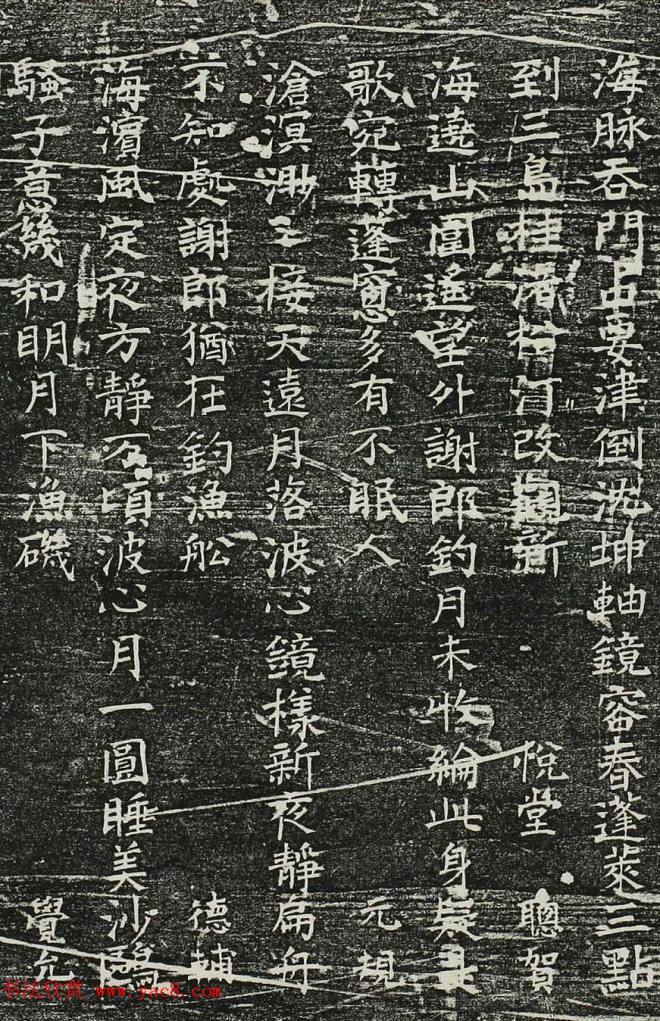 海脉吞門占要津倒沈坤軸鏡窗春蓬萊三點
到三島桂渚 汀改觀新 悅堂 聰賀
海遶山圍遙望外謝郎釣月未收綸此身疑
歌宛轉蓬窻多有不眠人 元規
滄溟渺〻接天遠月落波心鏡樣新夜靜扁舟
不知處謝郎猶在釣漁舩 德輔
海濱風定夜方靜万頃波心月一圓睡美沙鷗
騷子意幾和明月下漁磯 覺允
书法欣赏 www.yac8.com